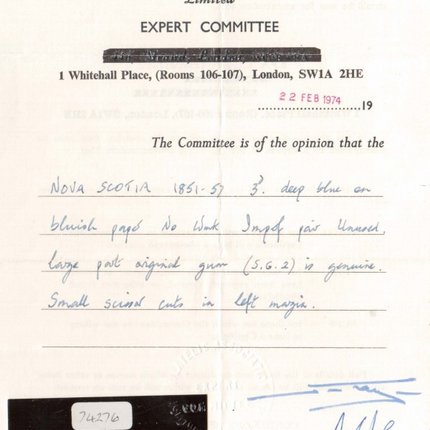 Limited
EXPERT COMMITTEE
1 Whitehall Place, (Rooms 106-107), London, SW1A 2HE
22 FEB 1974 19
The Committee is of the opinion that the
NOVA SCOTIA 1851-57 3d. deep blue on
bluish paper No Wmk Imperf pair Unused,
large part original gum (S.G.2) is genuine.
Small scissor cuts in left margin.
74276